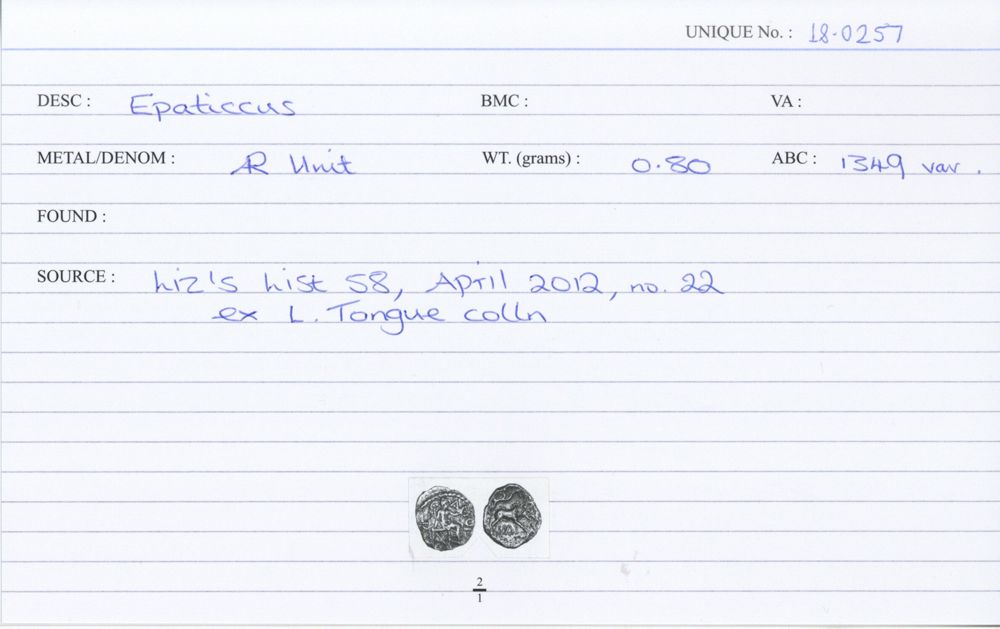 UNIQUE No. : 18-0257
DESC : Epaticcus BMC : VA :
METAL/DENOM : AR Unit WT. (grams) : 0.80 ABC : 1349 var.
FOUND :
SOURCE : Liz's List 58, April 2012, no. 22
ex L. Tongue colln
2
1